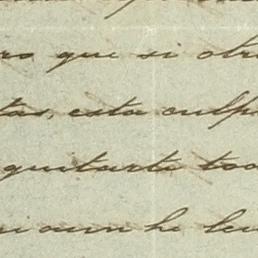 que si otr
tas, esta culp
quitarte to
aun he le